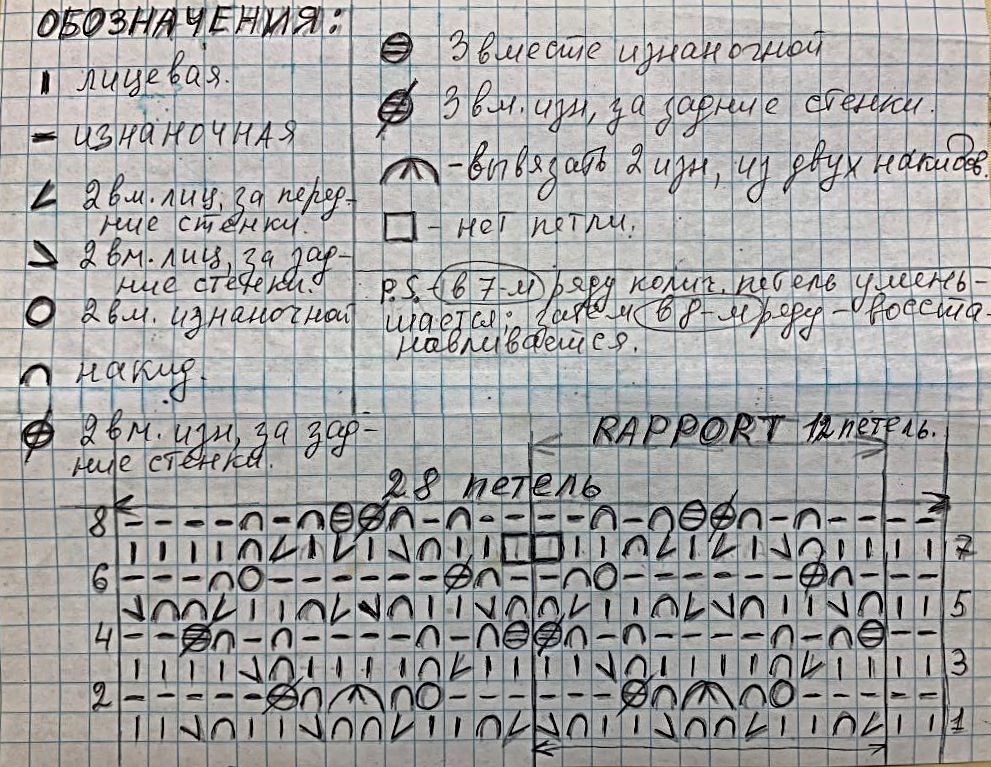 ОБОЗНАЧЕНИЯ:
лицевая.
изнаночная
2 вм. лиц, за перед-
ние стенки.
2 вм. лиц, за зад-
ние стенки.
2 вм. изнаночной
накид.
2 вм. изн, за зад-
ние стенки.
3 вместе изнаночной
3 вм. изн, за задние стенки.
-вывязать 2 изн, из двух накидов.
- нет петли.
P.S.- в 7-м ряду колич. петель умень-
шается; затем в 8-м ряду - восста-
навливается.
RAPPORT 12 петель.
28 петель
8
7
6
5
4
3
2
1